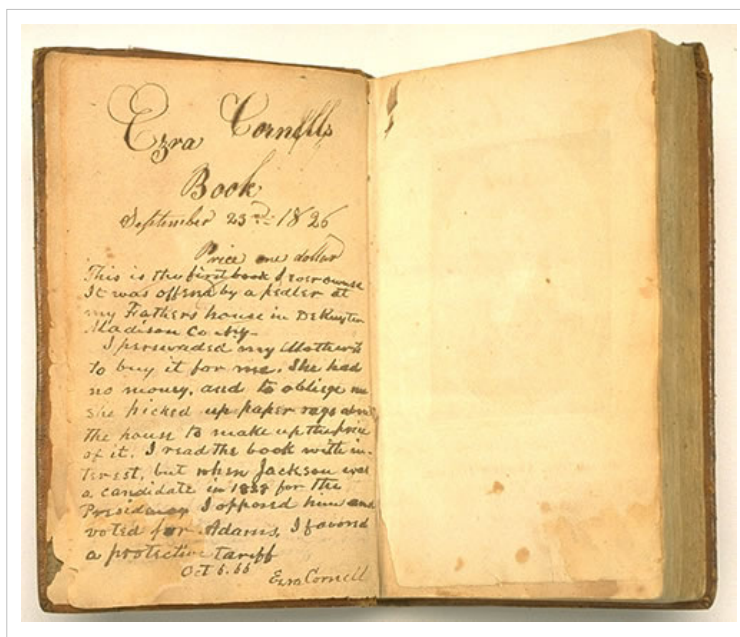 Ezra Cornell's
Book
September 23rd 1826
Price one dollar
This is the first book I ever owned
It was offered by a pedler at
my Fathers house in DeRuyter
Madison Co Ny-
I perswaded my Mother to
to buy it for me. She had
no money, and to obliege me
she picked up paper rags about
the house to make up the price
of it. I read the book with in-
terest, but when Jackson was
a candidate in 1828 for the
Presidency I opposed him and
voted for Adams, I favord
a protective tariff
Oct 6.66
Ezra Cornell